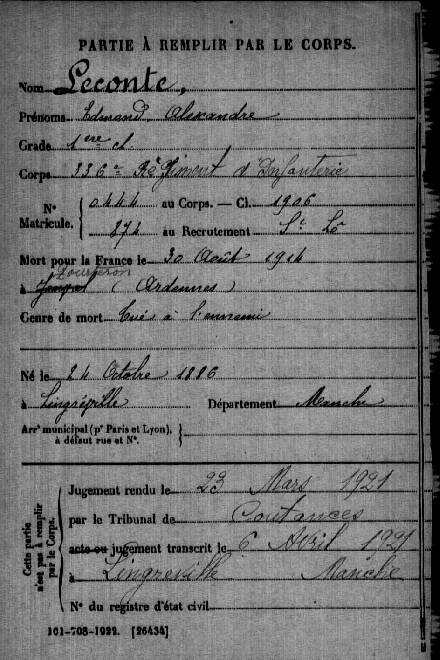 PARTIE À REMPLIR PAR LE CORPS.
Nom Leconte,
Prénoms Edmand Alexandre
Grade 1ère cl.
Corps 336e Régiment d'Infanterie
N° Matricule. 0444 au Corps. — Cl. 1906
874 au Recrutement St Lô
Mort pour la France le 30 Août 1914
à (Ardennes)
Genre de mort Tué à l'ennemi
Né le 24 Octobre 1886
à Lingreville Département Manche
Arrt municipal (pr Paris et Lyon),
à défaut rue et N°.
Cette partie n'est pas à remplir par le Corps.
Jugement rendu le 23 Mars 1921
par le Tribunal de Coutances
acte ou jugement transcrit le 6 Avril 1921
à Lingreville Manche
N° du registre d'état civil
101-708-1922. [26434]